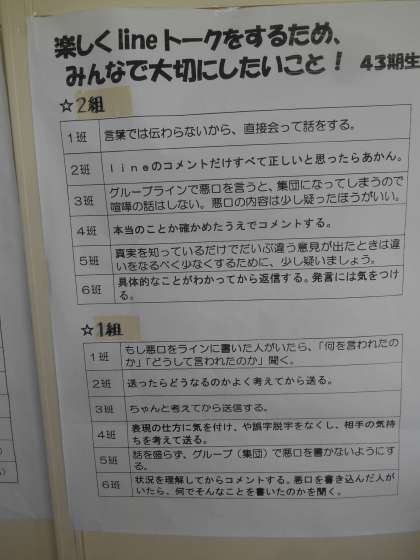 楽しくlineトークをするため、
みんなで大切にしたいこと！ 43期生
☆2組
1班 言葉では伝わらないから、直接会って話をする。
2班 lineのコメントだけすべて正しいと思ったらあかん。
3班 グループラインで悪口を言うと、集団になってしまうので
喧嘩の話はしない。悪口の内容は少し疑ったほうがいい。
4班 本当のことか確かめたうえでコメントする。
5班 真実を知っているだけでだいぶ違う意見が出たときは違
いをなるべく少なくするために、少し疑いましょう。
6班 具体的なことがわかってから返信する。発言には気をつけ
る。
☆1組
1班 もし悪口をラインに書いた人がいたら、「何を言われたの
か」「どうして言われたのか」聞く。
2班 送ったらどうなるのかよく考えてから送る。
3班 ちゃんと考えてから送信する。
4班 表現の仕方に気を付け、や誤字脱字をなくし、相手の気持
ちを考えて送る。
5班 話を盛らず、グループ（集団）で悪口を書かないようにす
る。
6班 状況を理解してからコメントする。悪口を書き込んだ人が
いたら、何でそんなことを書いたのかを聞く。